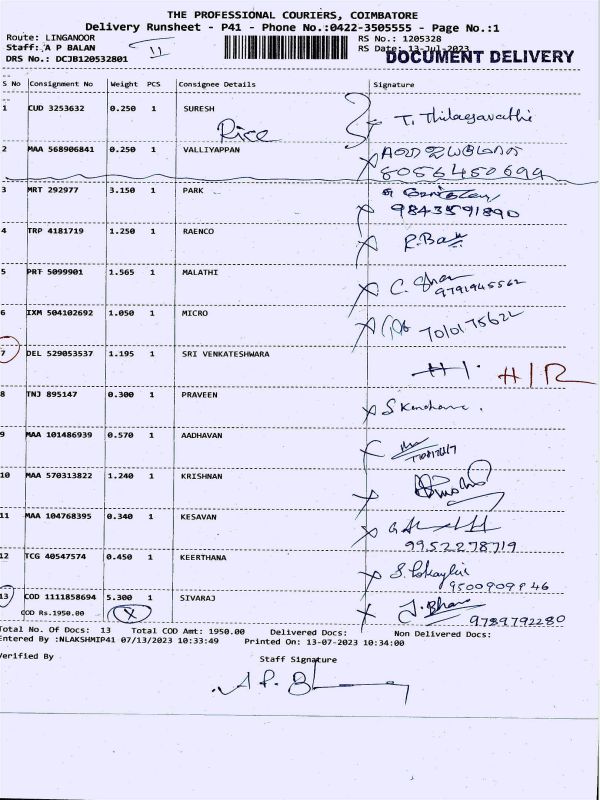 THE PROFESSIONAL COURIERS, COIMBATORE
Delivery Runsheet - P41 - Phone No.:0422-3505555 - Page No.:1
Route: LINGANOOR
RS No.: 1205328
Staff: A P BALAN
11
RS Date: 13-Jul-2023
DRS No.: DCJB120532801
DOCUMENT DELIVERY
S No Consignment No Weight PCS Consignee Details Signature
1 CUD 3253632 0.250 1 SURESH T. Thilagavathi
Rice
2 MAA 568906841 0.250 1 VALLIYAPPAN
8056450694
3 MRT 292977 3.150 1 PARK
9843591890
4 TRP 4181719 1.250 1 RAENCO
5 PRT 5099901 1.565 1 MALATHI
9791945562
6 IXM 504102692 1.050 1 MICRO
7 DEL 529053537 1.195 1 SRI VENKATESHWARA
H/R
8 TNJ 895147 0.300 1 PRAVEEN
9 MAA 101486939 0.570 1 AADHAVAN
10 MAA 570313822 1.240 1 KRISHNAN
11 MAA 104768395 0.340 1 KESAVAN
9952278719
12 TCG 40547574 0.450 1 KEERTHANA
13 COD 1111858694 5.300 1 SIVARAJ
COD Rs.1950.00 X
9789792280
Total No. Of Docs: 13 Total COD Amt: 1950.00 Delivered Docs: Non Delivered Docs:
Entered By :NLAKSHMIP41 07/13/2023 10:33:49 Printed On: 13-07-2023 10:34:00
Verified By Staff Signature